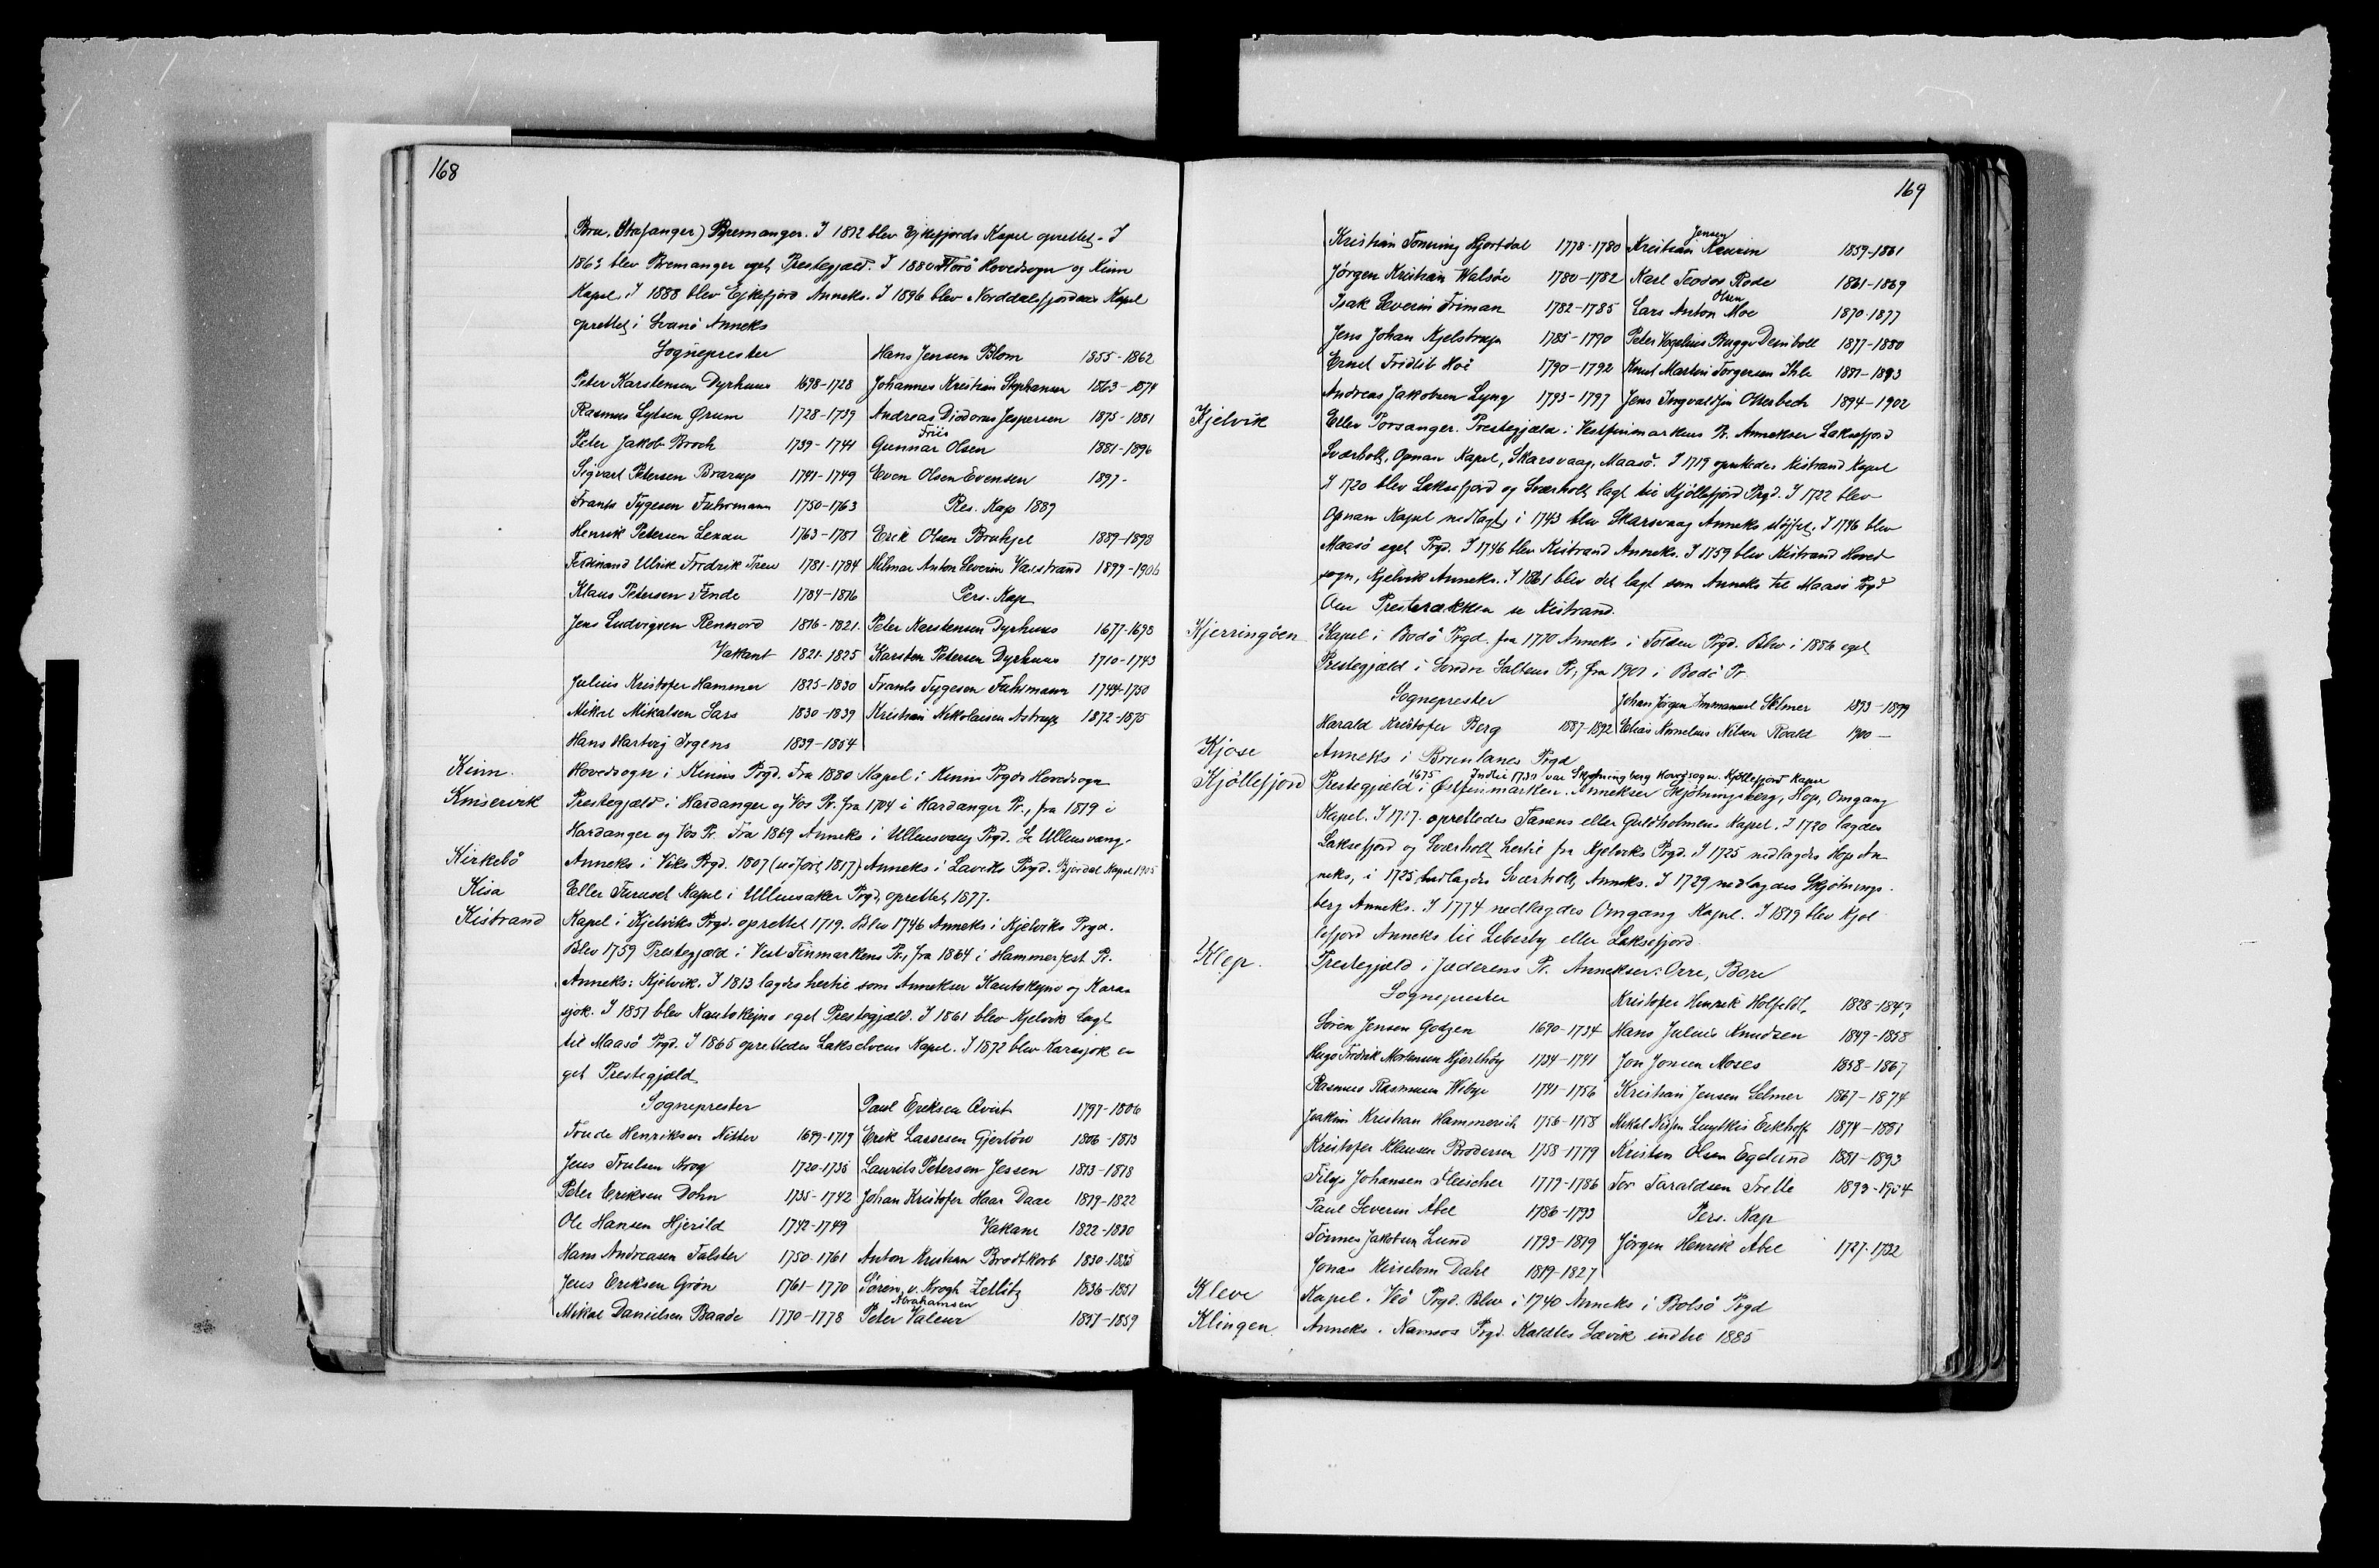 168
Bru, Stafanger) Bremanger. I 1812 blev Ejkefjords Kapel oprettet. I
1863 blev Bremanger eget Prestegjæld. I 1880 Florö Hovedsogn og Kinn
Kapel. I 1888 blev Ejkefjord Anneks. I 1896 blev Norddalsfjordens Kapel
oprettet i Svanö Anneks
Sogneprester
Peter Karstensen Dyrhuus 1698-1728
Rasmus Lydsen Ørum 1728-1739
Peter Jakob Broch 1739-1741
Sigvart Petersen Brarup 1741-1749
Frants Tygesen Fuhrmann 1750-1763
Henrik Petersen Lexau 1763-1781
Ferdinand Ulrik Fredrik Treu 1781-1784
Klaus Petersen Finde 1784-1816
Jens Ludvigsen Rennord 1816-1821.
Vakant 1821-1825
Julius Kristofer Hammer 1825-1830
Mikal Mikalsen Sars 1830-1839
Hans Hartvig Irgens 1839-1854
Hans Jensen Blom 1855-1862
Johannes Kristian Stephansen 1863-1874
Andreas Diodorus Jespersen 1875-1881
Friis
Gunnar Olsen 1881-1896
Even Olsen Evensen 1897-
Res. Kap 1889
Erik Olsen Bruhjel 1889-1898
Hilmar Anton Severin Varstrand 1899-1906
Pers. Kap
Peter Karstensen Dyrhuus 1677-1698
Karsten Petersen Dyrhuus 1710-1743
Frants Tygesen Fuhrmann 1744-1750
Kristian Nikolaisen Astrup 1872-1875
Kinn. Hovedsogn i Kinns Prgd. Fra 1880 Kapel i Kinns Prgds Hovedsogn
Kinservik Prestegjæld i Hardanger og Vos Pr. fra 1704 i Hardanger Pr., fra 1819 i
Hardanger og Vos Pr. Fra 1869 Anneks i Ullensvang Prgd. Se Ullensvang.
Kirkebö Anneks i Viks Prgd. 1807 (udført 1817) Anneks i Laviks Prgd. Bjordal Kapel 1905
Kisa Eller Furuset Kapel i Ullensaker Prgd, oprettet 1877.
Kistrand Kapel i Kjelviks Prgd. oprettet 1719. Blev 1746 Anneks i Kjelviks Prgd.
Blev 1759 Prestegjæld i Vest Finmarkens Pr., fra 1864 i Hammerfest Pr.
Anneks: Kjelvik. I 1813 lagdes hertil som Annekser Kautokejno og Karas
jok. I 1851 blev Kautokejno eget Prestegjæld. I 1861 blev Kjelvik lagt
til Maasö Prgd. I 1865 oprettedes Lakselvens Kapel. I 1872 blev Karasjok e-
get Prestegjæld
Sogneprester
Trude Henriksen Nitter 1699-1719
Jens Trulsen Krog 1720-1735
Peter Eriksen Dohn 1735-1742
Ole Hansen Hjerild 1742-1749
Hans Andreasen Falster 1750-1761
Jens Eriksen Grön 1761-1770
Mikal Danielsen Baade 1770-1778
Paul Eriksen Qvist 1797-1806
Erik Lassesen Gjerlöw 1806-1813
Laurits Petersen Jessen 1813-1818
Johan Kristofer Haar Daae 1819-1822
Vakant 1822-1830
Anton Kristian Brodtkorb 1830-1835
Sören v. Krogh Zetlitz 1836-1851
Abrahamsen
Peter Valeur 1851-1859
169
Kristian Tønning Hjortdal 1778-1780
Jörgen Kristian Walsöe 1780-1782
Isak Severin Friman 1782-1785
Jens Johan Kjelstrup 1785-1790
Ernst Fridlib Hoë 1790-1792
Andreas Jakobsen Lyng 1793-1797
Jensen
Kristian 1859-1861
Karl Teodor Rode 1861-1869
Olsen
Lars Anton Moe 1870-1877
Peter Vogelius Bugge Deinboll 1877-1880
Knut Martin Torgersen Ihle 1881-1893
Jens Ingvaldsen Otterbech 1894-1902
Kjelvik Eller Porsanger. Prestegjæld i Vestfinmarkens Pr. Annekser Laksefjord
Sværholt, Opnan Kapel, Skarsvaag, Maasö. I 1719 oprettedes Kistrand Kapel
I 1720 blev Laksefjord og Sværholt lagt til Kjöllefjord Prgd. I 1722 blev
Opnan Kapel nedlagt, i 1743 blev Skarsvaag Anneks slöjfet. I 1746 blev
Maasö eget Prgd. I 1746 blev Kistrand Anneks. I 1759 blev Kistrand Hoved
sogn, Kjelvik Anneks. I 1861 blev det lagt som Anneks til Maasö Prgd
Om Presterækken se Kistrand.
Kjerringöen Kapel i Bodö Prgd. fra 1770 Anneks i Folden Prgd. Blev i 1886 eget
Prestegjæld i Söndre Saltens Pr, fra 1901 i Bodö Pr.
Sogneprester
Harald Kristofer Berg 1887-1892
Johan Jörgen Immanuel Selmer 1893-1899
Elias Kornelius Nilsen Roald 1900-
Kjose Anneks i Brunlanes Prgd
1675 Indtil 1730 var Skjötningberg Hovedsogn. Kjöllefjord Kapel
Kjöllefjord Prestegjæld i Østfinmarken. Annekser Skjötningsberg, Hop, Omgang
Kapel. I 1717 oprettedes Tanens eller Guldholmens Kapel. I 1720 lagdes
Laksefjord og Sværholt hertil fra Kjelviks Prgd. I 1725 nedlagdes Hop An-
neks, i 1725 nedlagdes Sværholt Anneks. I 1729 nedlagdes Skjötnings-
berg Anneks. I 1774 nedlagdes Omgang Kapel. I 1819 blev Kjöl
lefjord Anneks til Lebesby eller Laksefjord.
Klep. Prestegjæld i Jæderens Pr. Annekser: Orre, Bore
Sogneprester
Sören Jensen Godzen 1690-1734
Hugo Fredrik Mortensen Hjorthöy 1734-1741
Rasmus Rasmussen Wibye 1741-1756
Joakim Kristian Hammerich 1756-1758
Kristofer Klausen Brodersen 1758-1779
Filip Johansen Fleischer 1779-1786
Paul Severin Abel 1786-1793
Tönnes Jakobsen Lund 1793-1819
Jonas Kirsebom Dahl 1819-1827
Kristofer Henrik Holfeldt, 1828-184?
Hans Julius Knudzen 1849-1858
Jon Jonsen Moses 1858-1867
Kristian Jensen Selmer 1867-1874
Mikal Nilsen Luytkis Eckhoff 1874-1881
Kristen Olsen Egelund 1881-1893
Tor Taraldsen Frette 1893-1904
Pers. Kap
Jörgen Henrik Abel 1727-1732
Kleve Kapel. Veö Prgd. Blev i 1740 Anneks i Bolsö Prgd
Klingen Anneks. Namsos Prgd. Kaldtes Sævik indtil 1885